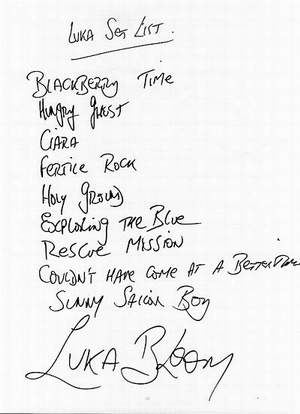 LUKA SET LIST.
BLACKBERRY TIME
HUNGRY GHOST
CIARA
FERTILE ROCK
HOLY GROUND
EXPLORING THE BLUE
RESCUE MISSION
COULDN'T HAVE COME AT A BETTER TIME
SUNNY SAILOR BOY
LUKA BLOOM